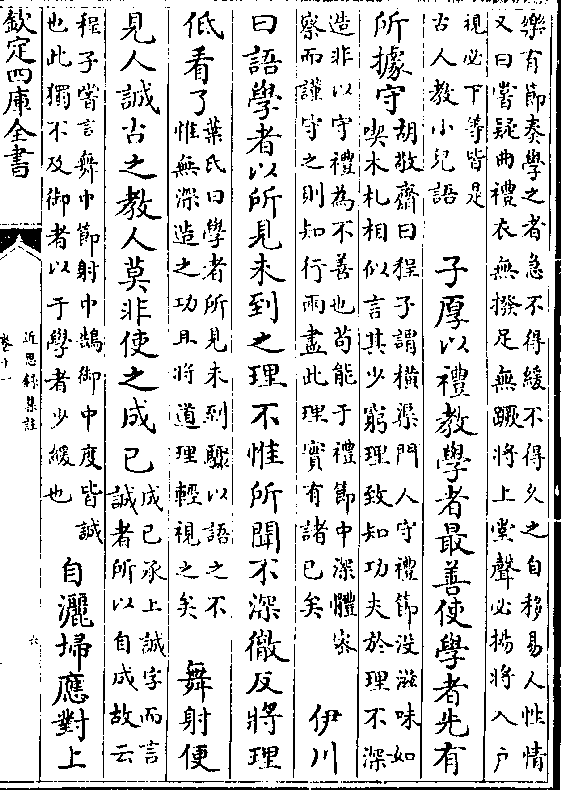 樂有節奏學之者急不得緩不得久之自移易人性情
又曰嘗疑曲禮衣無撥足無蹶將上堂聲必揚將入户
視必下等皆是
古人教小兒語
子厚以禮教學者最善使學者先有
所據守
胡敬齋曰程子謂橫渠門人守禮節没滋味如
喫木札相似言其少窮理致知功夫於理不深
造非以守禮為不善也苟能于禮節中深體密
察而謹守之則知行兩盡此理實有諸已矣
伊川
曰語學者以所見未到之理不惟所聞不深徹反將理
低看了
葉氏曰學者所見未到驟以語之不
惟無深造之功且將道理輕視之矣
舞射便
見人誠古之教人莫非使之成已
成已承上誠字而言
誠者所以自成故云
程子嘗言舞中節射中鵠御中度皆誠
也此獨不及御者以于學者少緩也
自灑埽應對上
欽定四庫全書
近思録集註
卷十一
六